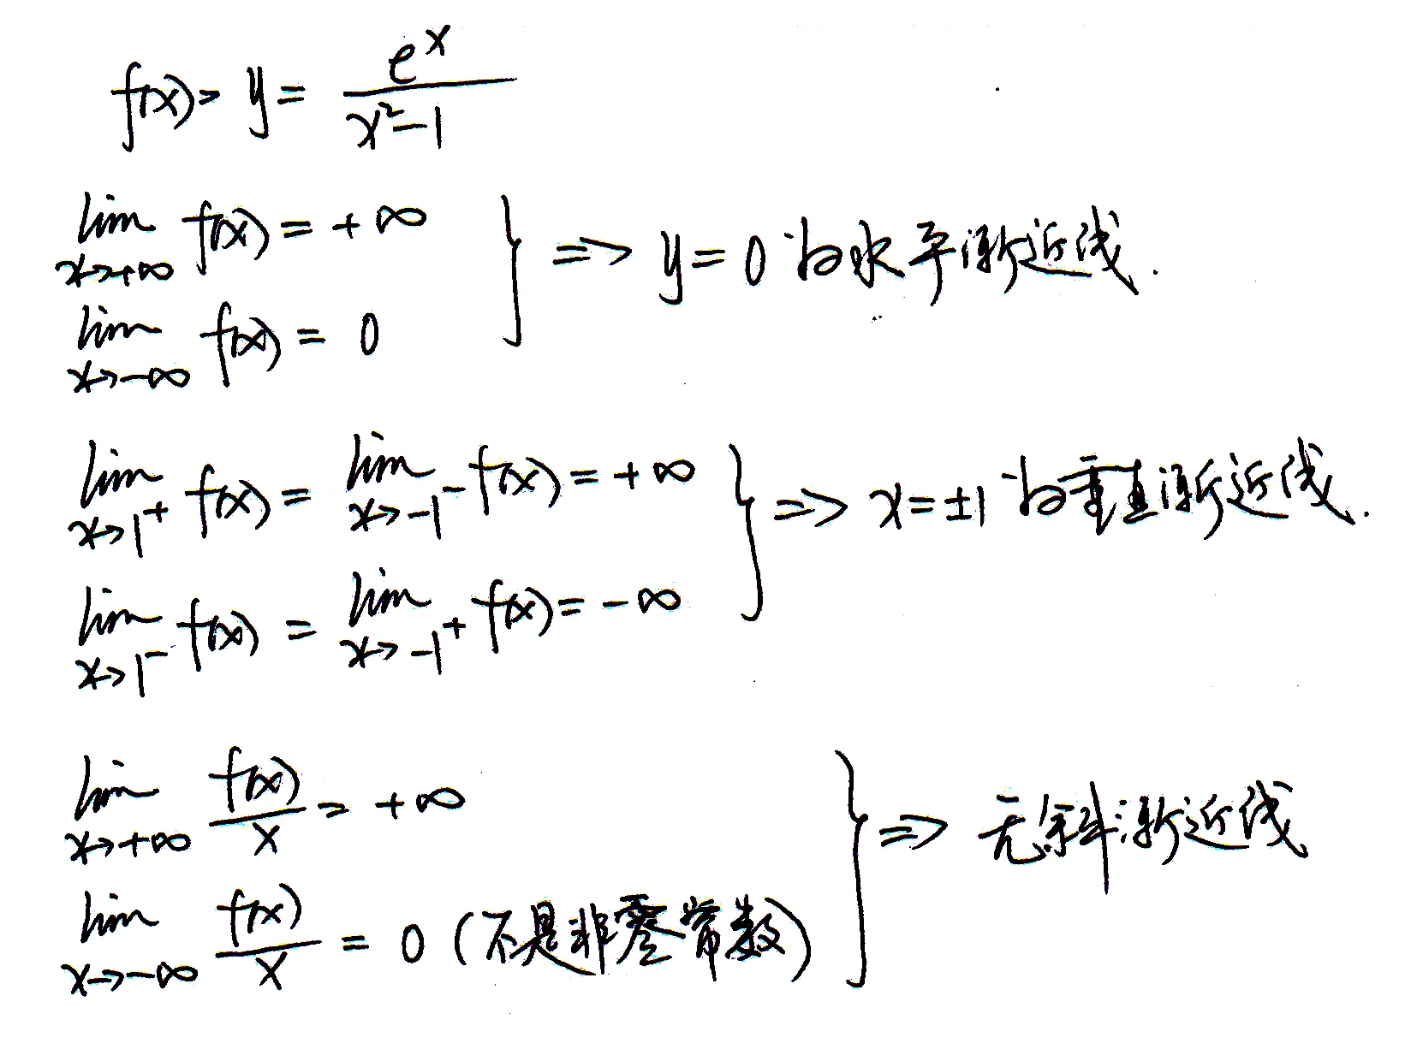 f(x) = y = e^x / (x²-1)
lim x→+∞ f(x) = +∞
lim x→-∞ f(x) = 0
} ⇒ y = 0 为水平渐近线.
lim x→1⁺ f(x) = lim x→-1⁻ f(x) = +∞
lim x→1⁻ f(x) = lim x→-1⁺ f(x) = -∞
} ⇒ x = ±1 为垂直渐近线.
lim x→+∞ f(x)/x = +∞
lim x→-∞ f(x)/x = 0 (不是非零常数)
} ⇒ 无斜渐近线